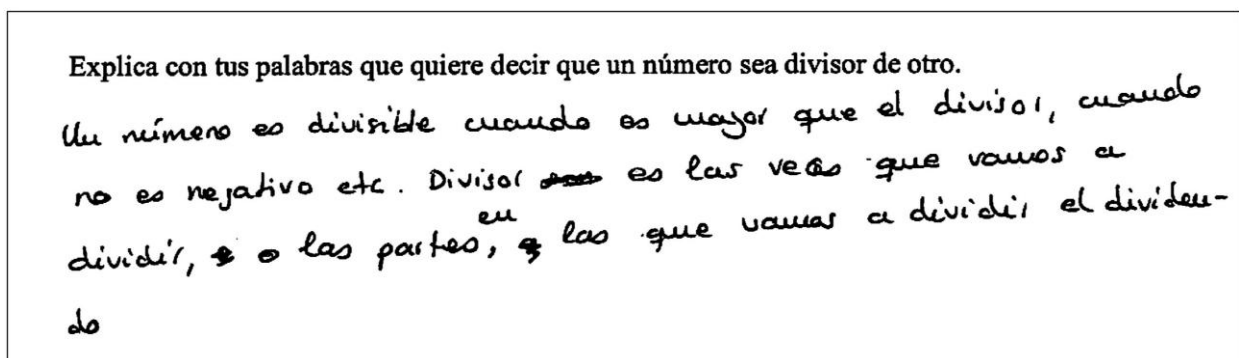 Explica con tus palabras que quiere decir que un número sea divisor de otro.
Un número es divisible cuando es mayor que el divisor, cuando
no es negativo etc. Divisor es las veces que vamos a
dividir, o las partes, en las que vamos a dividir el dividen-
do